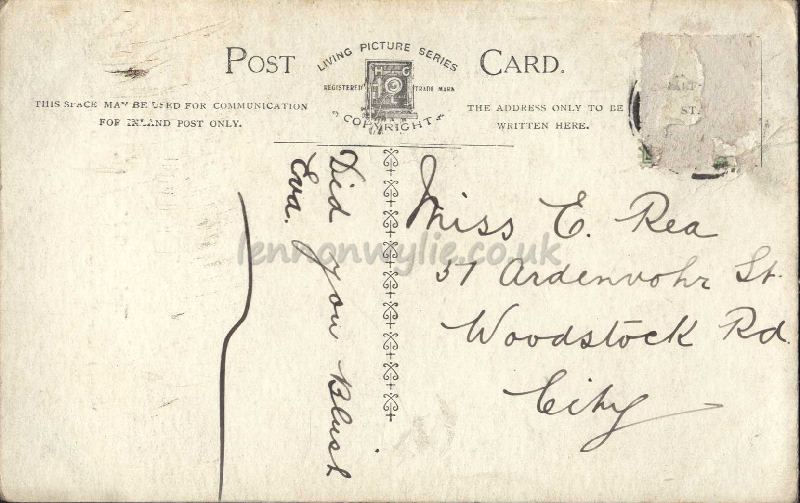 POST CARD.
LIVING PICTURE SERIES
H G
REGISTERED TRADE MARK
COPYRIGHT
THIS SPACE MAY BE USED FOR COMMUNICATION
FOR INLAND POST ONLY.
THE ADDRESS ONLY TO BE
WRITTEN HERE.
ST.
Did you Blush
Eva.
Miss E. Rea
57 Ardenvohr St.
Woodstock Rd.
City
lennonwylie.co.uk